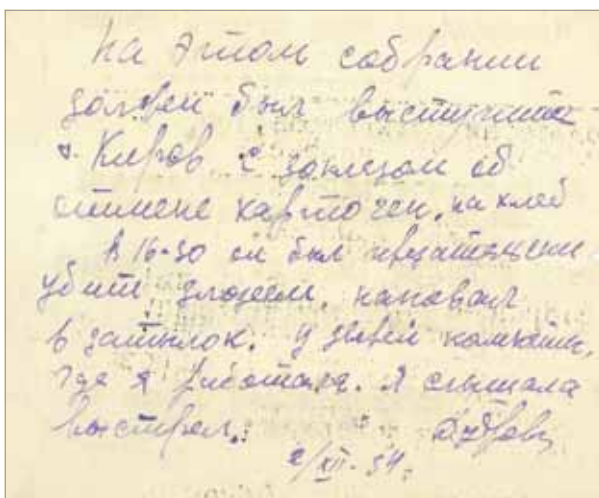 На этом собрании
должен был выступить
т. Киров с докладом об
отмене карточек на хлеб
В 16-30 он был
убит злодеем, наповал
в затылок. У дверей комнаты,
где я работала. Я слышала
выстрел.
2/XII-34.